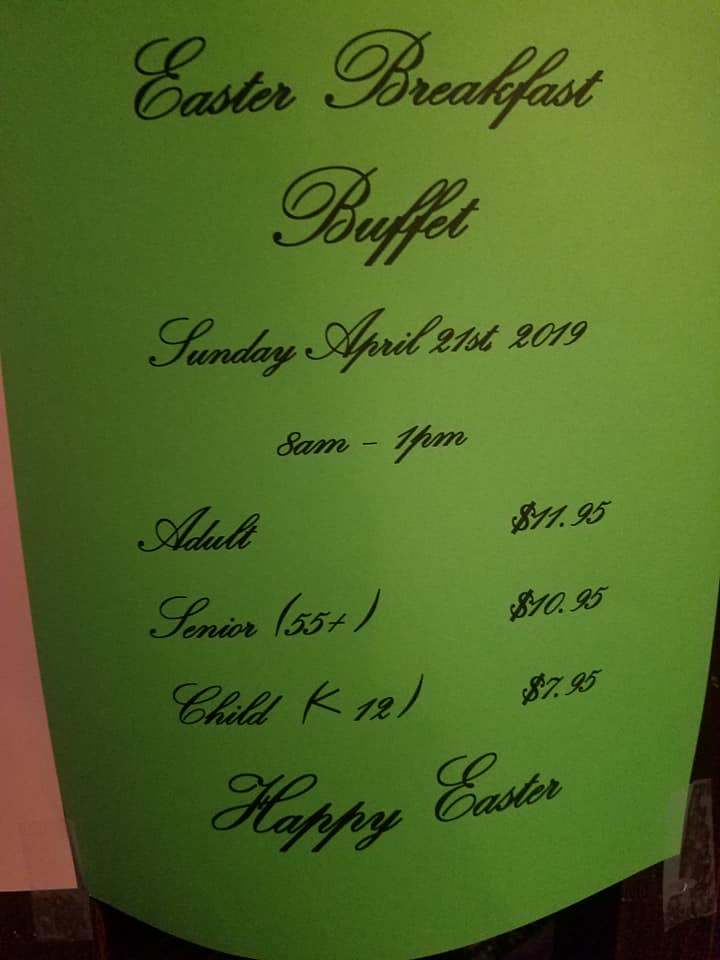 Easter Breakfast
Buffet
Sunday April 21st, 2019
8am - 1pm
Adult $11.95
Senior (55+) $10.95
Child (< 12) $7.95
Happy Easter